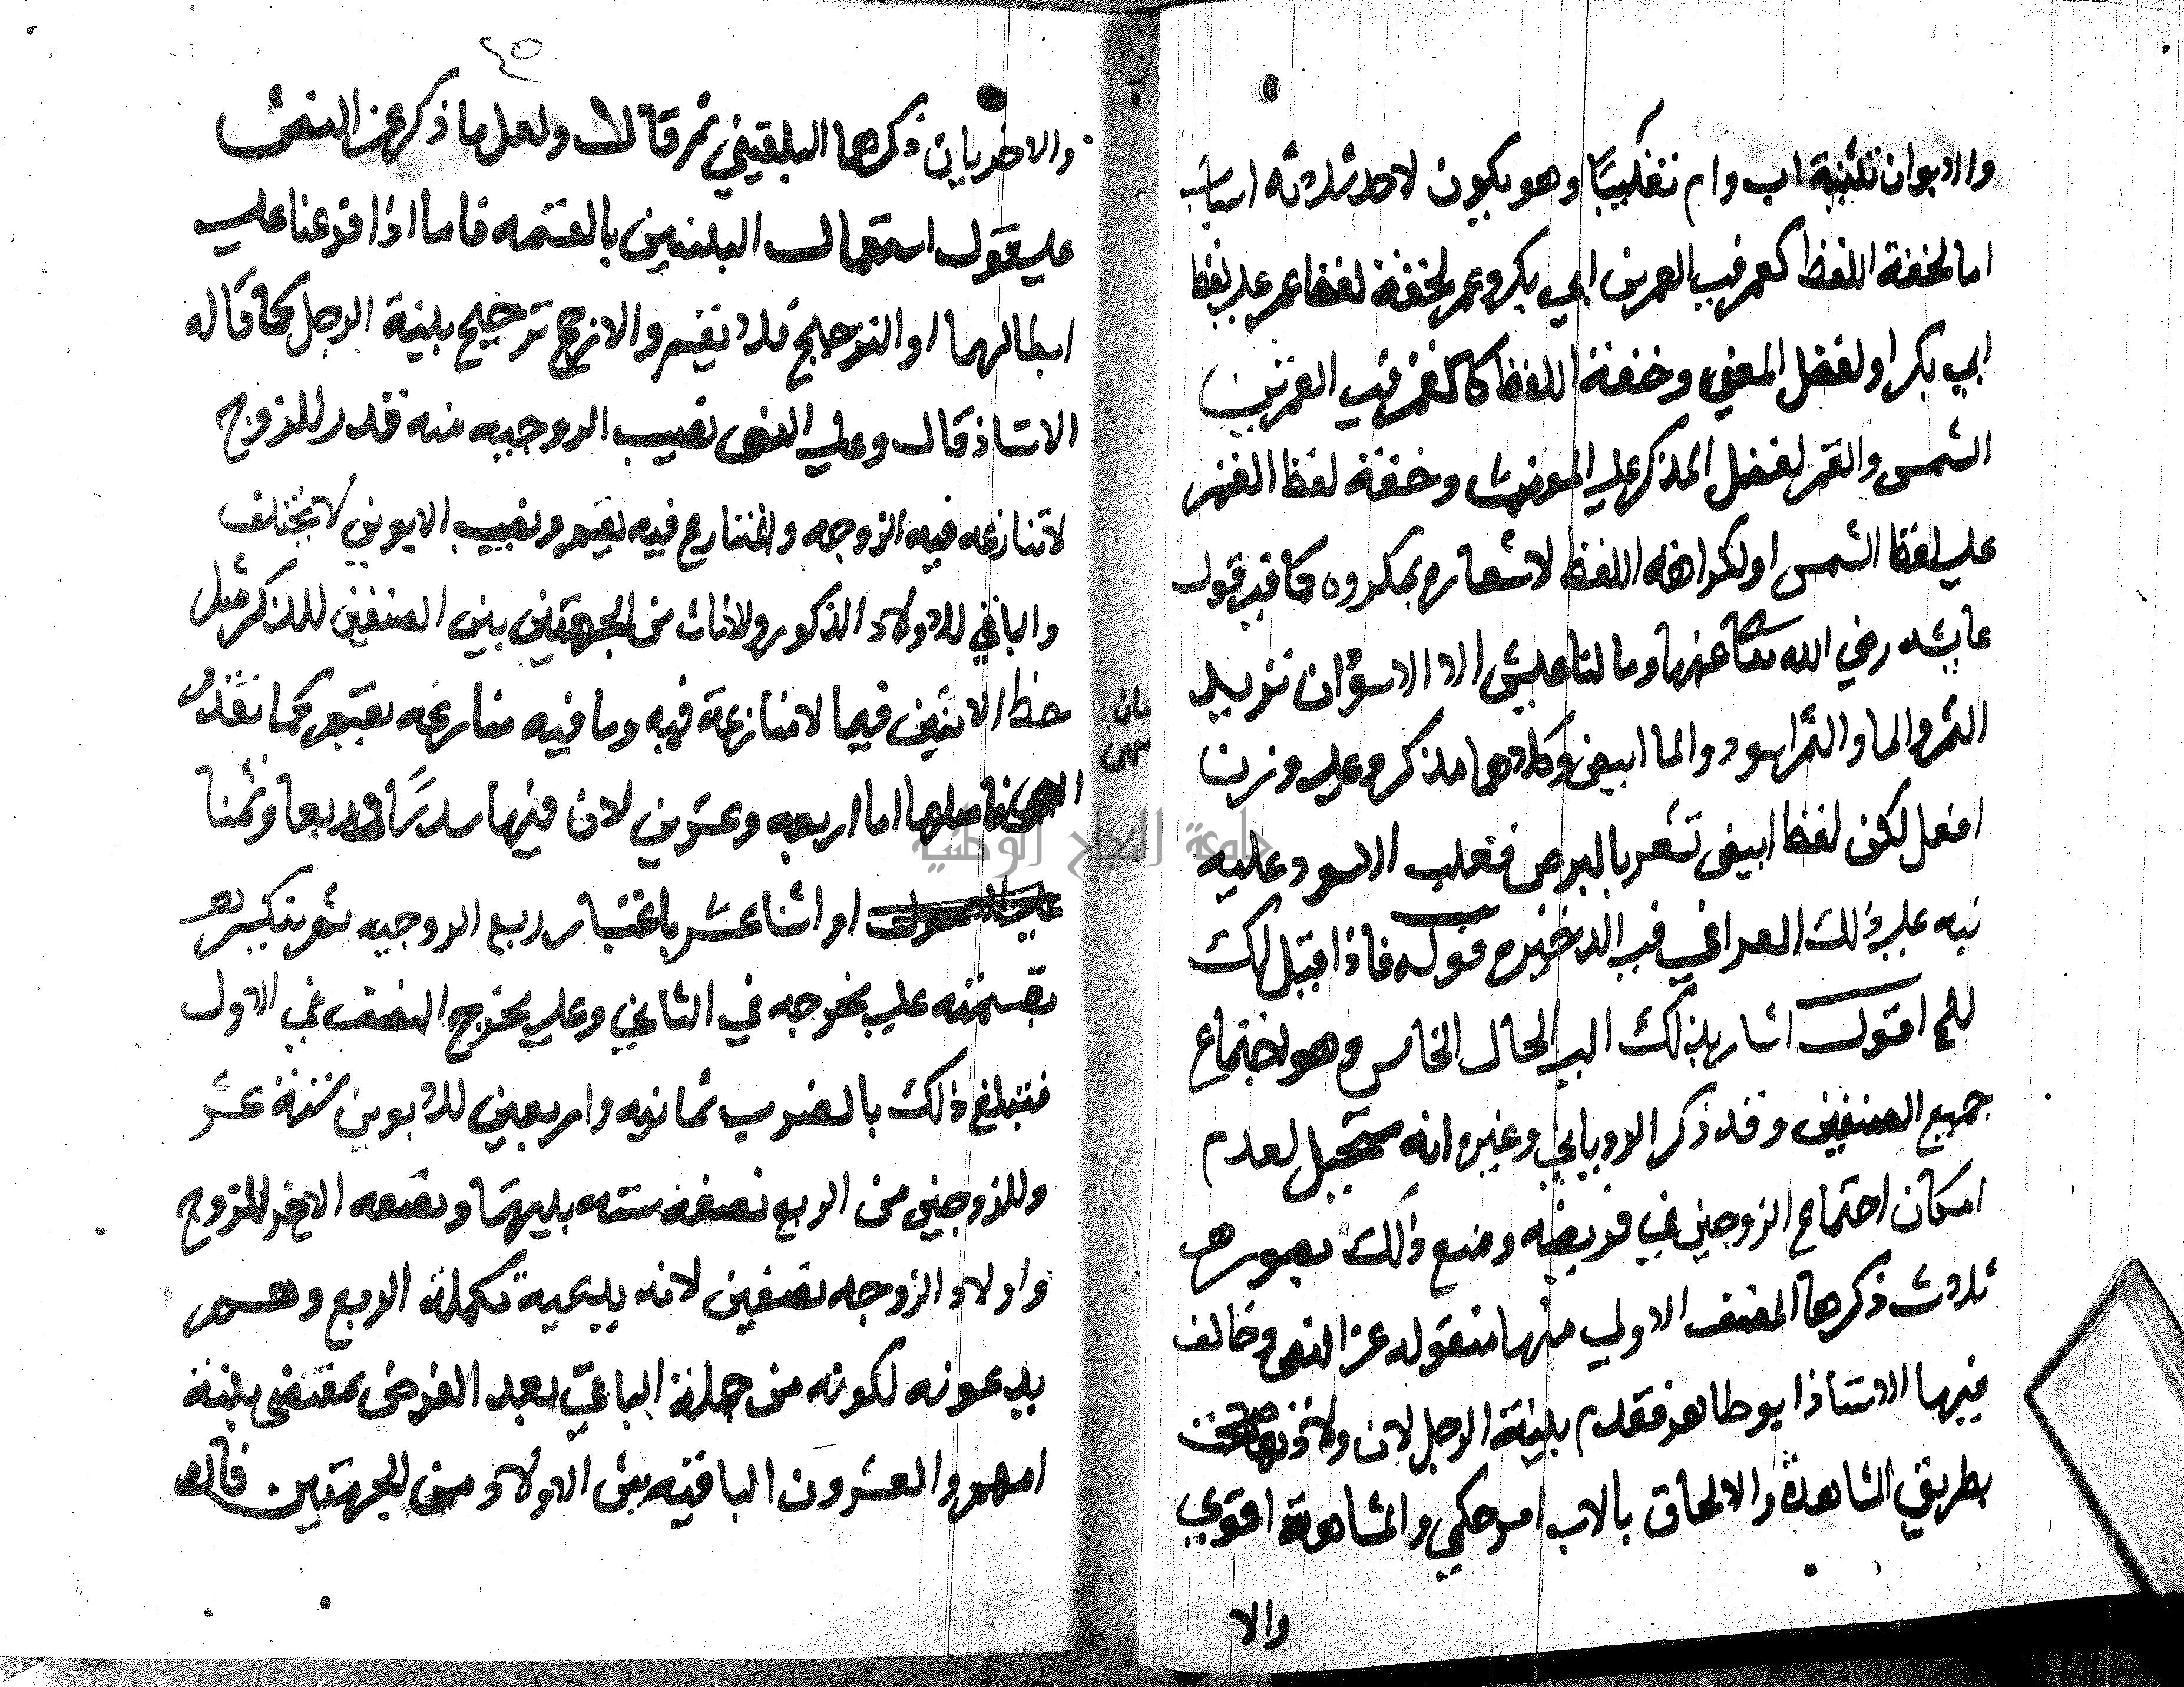 والابوان تثنية اب وام تغليبا وهو يكون لاحد ثلاثه اسباب
اما لخفة اللفظ كعمر في العمرين ابي بكر وعمر لخفة لفظ عمر على لفظ
ابي بكر او لفضل المعنى وخفة اللفظ كالقمر في القمرين
الشمس والقمر لفضل المذكر على المونث وخفة لفظ القمر
على لفظ الشمس او لكراهة اللفظ لاشعاره بمكروه كما في قول
عايشه رضي الله تعالى عنها وما لنا عيش الا الاسودان تريد
التمر والما والتمر اسود والما ابيض وكلاهما مذكر وعلى وزن
افعل لكن لفظ ابيض تشعر بالبرص فغلب الاسود عليه
نبه على ذلك القرافي في الدخيره قوله فاذا قبل لك
للم اقول اشار بذلك الى الحال الخامس وهو اجتماع
جميع الصنفين وقد ذكر الروياني وغيره انه مستحيل لعدم
امكان اجتماع الزوجين في فريضه ومنع ذلك بصور هي
ثلاث ذكرها المصنف الاولى منها منقوله عن النص وخالف
فيها الاستاذ ابو طاهر فقدم بينة الرجل لان ولادتها صحت
بطريق المشاهدة والالحاق بالاب امر حكمي والمشاهدة اقوى
والا
٤٥
والاخريان ذكرهما البلقيني ثم قال ولعل ما ذكر عن النص
على قول استعمال البينتين بالقسمه فاما اذا فرعنا على
ابطالهما او الترجيح فلا تقسم والارجح ترجيح بينة الرجل كما قاله
الاستاذ قال وعلى النص نصيب الزوجيه منه قدر للزوج
لا تنازعه فيه الزوجه والمتنازع فيه يقسم ونصيب الابوين لا يختلف
والباقي للاولاد الذكور والاناث من الجهتين بين الصنفين للذكر مثل
حظ الانثيين فيما لا منازعة فيه وما فيه منازعه يقسم كما تقدم
اصلها اما اربعه وعشرين لان فيها سدسا وربعا وثمنا
او اثنا عشر باعتبار ربع الزوجيه ثم ينكسر
بقسمته على مخرجه في الثاني وعلى مخرج النصف في الاول
فتبلغ ذلك بالضرب ثمانيه واربعين للابوين ستة عشر
وللزوجين من الربع نصفه سته بينهما ونصفه الاخر للزوج
واولاد الزوجه نصفين لانه يدعيه تكملة الربع وهم
يدعونه لكونه من جملة الباقي بعد الفرض بمقتضى بينة
امهم والعشرون الباقيه بين الاولاد من الجهتين قاله
بيان
جامعة النجاح الوطنية